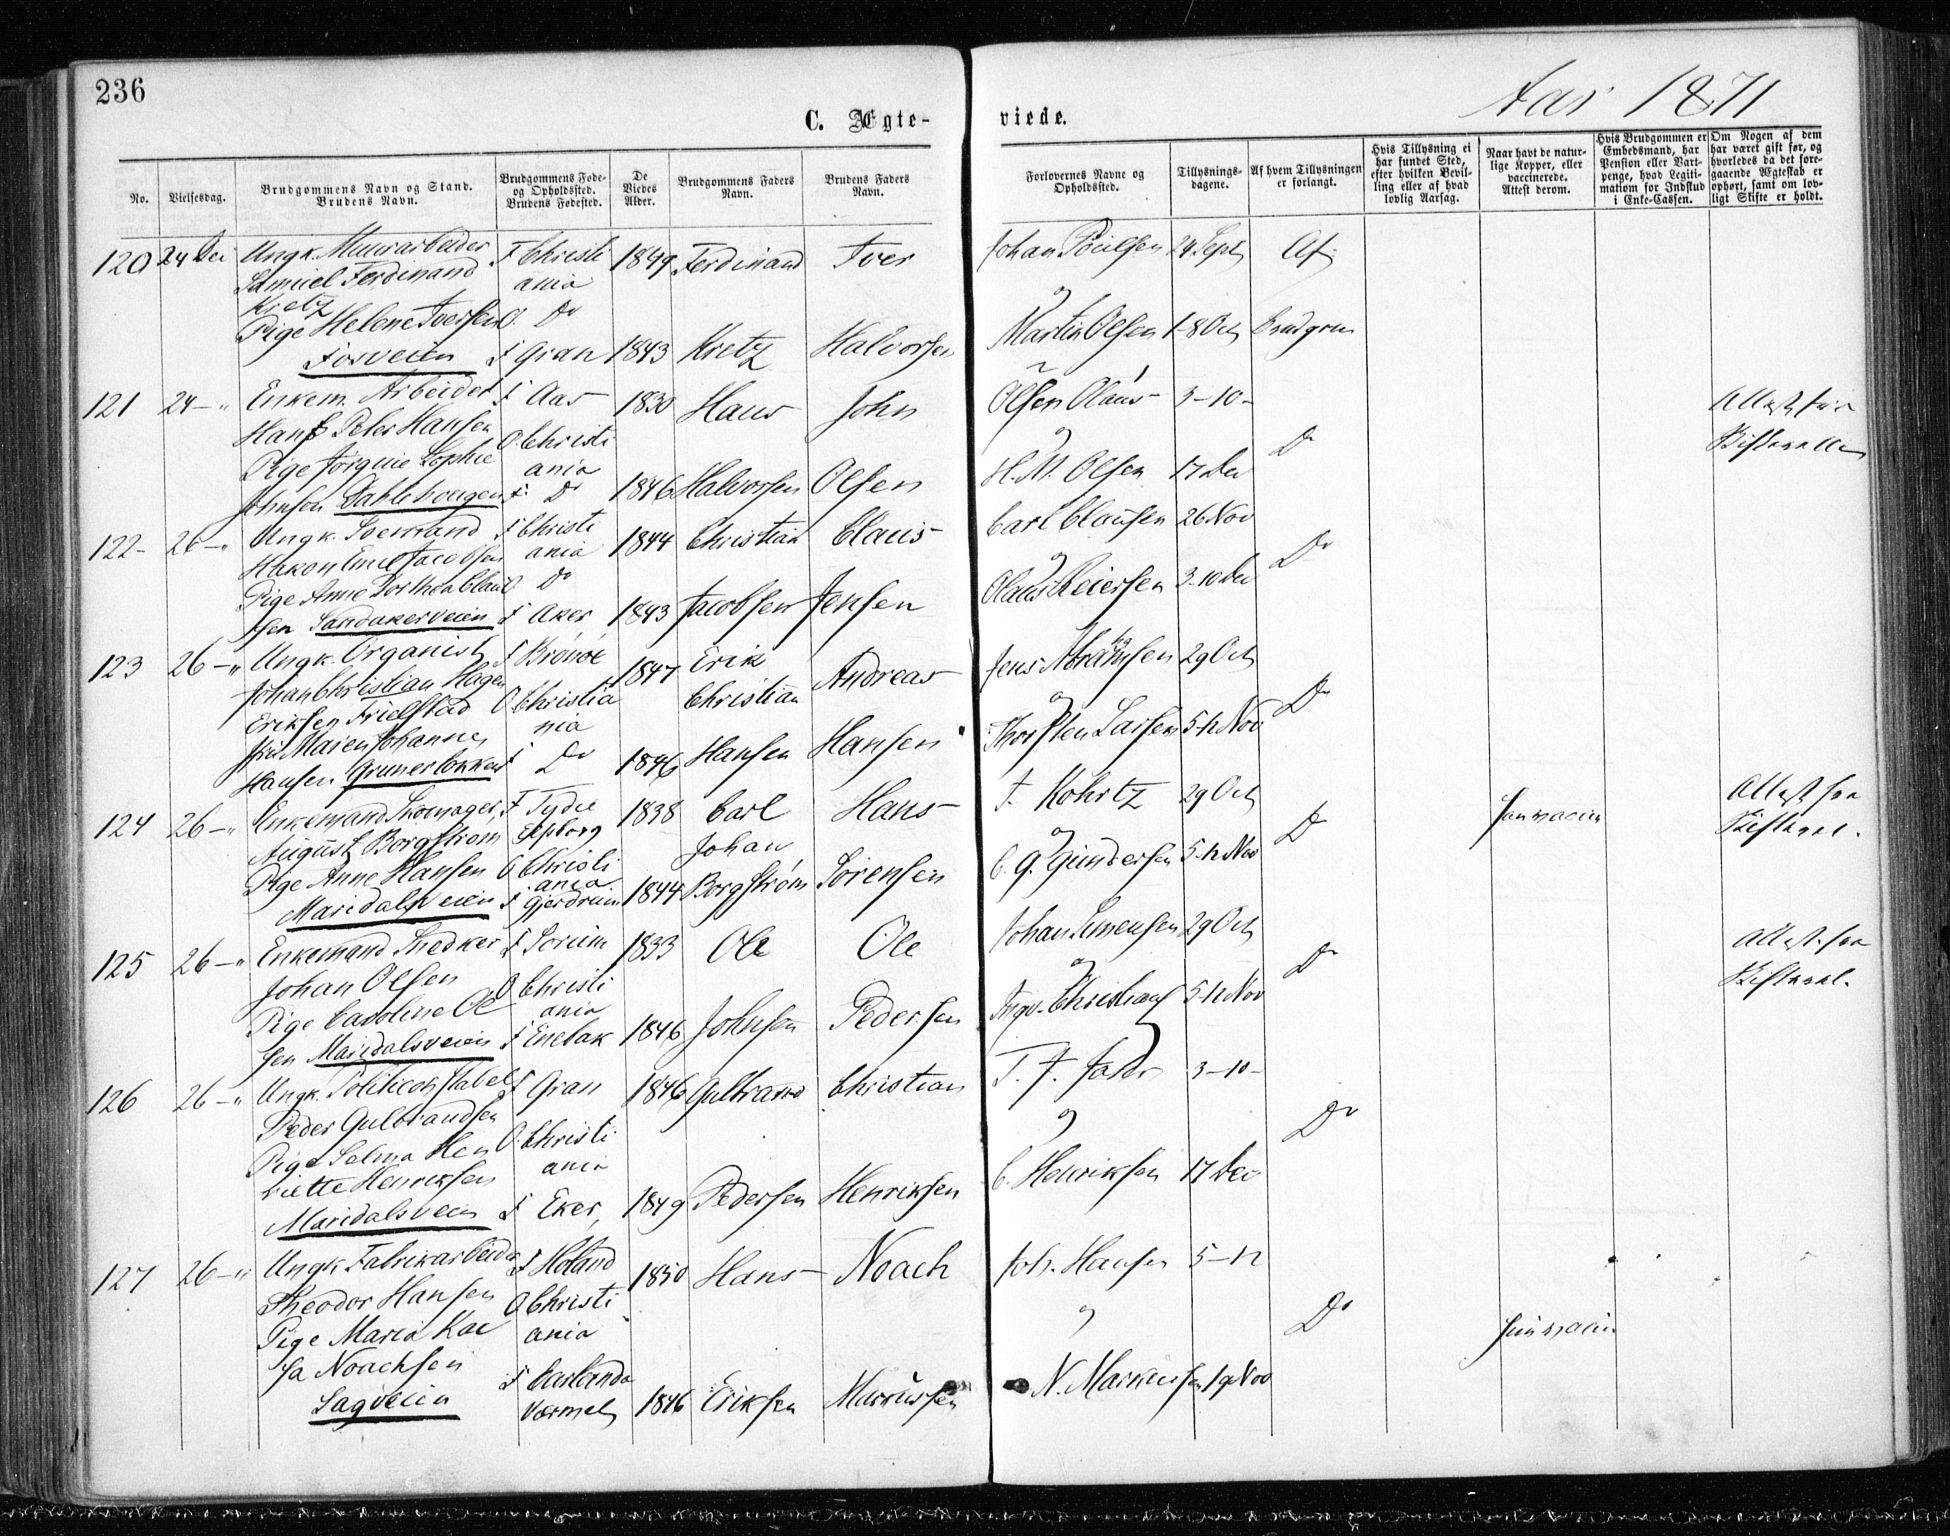 236
C. Ægte-
viede.
Aar 1871
No.
Vielsesdag.
Brudgommens Navn og Stand.
Brudens Navn.
Brudgommens Føde-
og Opholdssted.
Brudens Fødested.
De
Viedes
Alder.
Brudgommens Faders
Navn.
Brudens Faders
Navn.
Forlovernes Navne og
Opholdssted.
Tillysnings-
dagene.
Af hvem Tillysningen
er forlangt.
Hvis Tillysning ei
har fundet Sted,
efter hvilken Bevil-
ling eller af hvad
lovlig Aarsag.
Naar havt de natur-
lige Kopper, eller
vaccinerede.
Attest derom.
Hvis Brudgommen er
Embedsmand, har
Pension eller Vart-
penge, hvad Legiti-
mation for Indskud
i Enke-Cassen.
Om Nogen af dem
har været gift før, og
hvorledes da det fore-
gaaende Ægteskab er
ophørt, samt om lov-
ligt Skifte er holdt.
120 24 Dec Ungk. Muurarbeider F Christi 1849 Ferdinand Iver Johan Poulsen 24 Sept Af
Samuel Ferdinand ania og
Kretz
Pige Helene Iversen O. Do Martin Olsen 1-8 Oct Brudgom
Fosveien F Gran 1843 Kretz Halvorsen
121 24 - " Enkem. Arbeider F Aas 1830 Hans John Olsen Olaus 3-10- Attest fra
Hans Peter Hansen O. Christi og Do Skifteretten
Pige Jørgine Sophie ania H. M. Olsen 17 Dec
Johnsen Dahlehougen F. Do 1846 Halvorsen Olsen
122 - 26 - " Ungk. F Christi 1844 Christian Claus Carl Clausen 26 Nov
Hakon Emil Jacobsen ania og Do
Pige Anne Dorthea Clau O Do Olaus Reiersen 3-10 Dec
sen Sandakerveien F Aker, 1843 Jacobsen Jensen
123 26 - " Ungk. Organist F Brønøe 1847 Erik Andreas Jens Abrahamsen 29 Oct
Johan Christian Hagen O Christia Christian og Do
Eriksen Frielstad nia
Maren Johanne Thorsten Larsen 5-12 Nov
Hansen Grunerløkken F Do 1846 Hansen Hansen
124 26 - " Enkemand Skomager F Tydie 1838 Carl Hans J. Kohrtz 29 Oct Attest fra
August Borgstrøm Elfborg Johan og Do
Pige Anne Hansen O Christi C. G. Gundersen 5-12 Nov
Maridalsveien ania
F Gjerdrum 1844 Borgstrøm Sørensen
125 26 - " Enkemand Snedker F Sørum 1833 Ole Ole Johan Simensen 29 Oct Attest fra
Johan Olsen O Christi og Do
Pige Caroline Ol ania Ingv. Christians 5-12 Nov
sen Maridalsveien F Enebak 1846 Johnsen Pedersen
126 26 - " Ungk. Politiconstabel F Gran 1846 Gulbrand Christian T. J. 3-10-
Peder Gulbrandsen og
Pige Selma Hen O. Christi Do
riette Henriksen ania C. Henriksen 17 Dec
Maridalsveien F Eker, 1849 Pedersen Henriksen
127 26 - " Ungk. Fabrikarbeider F Høland 1850 Hans Noach Joh. Hansen 5-12
Theodor Hansen O Christi og Do
Pige Maria Kai ania
sa Noachsen F Carlanda N. Markussen 19 Nov
Sagveien Vermel. 1846 Eriksen Markussen